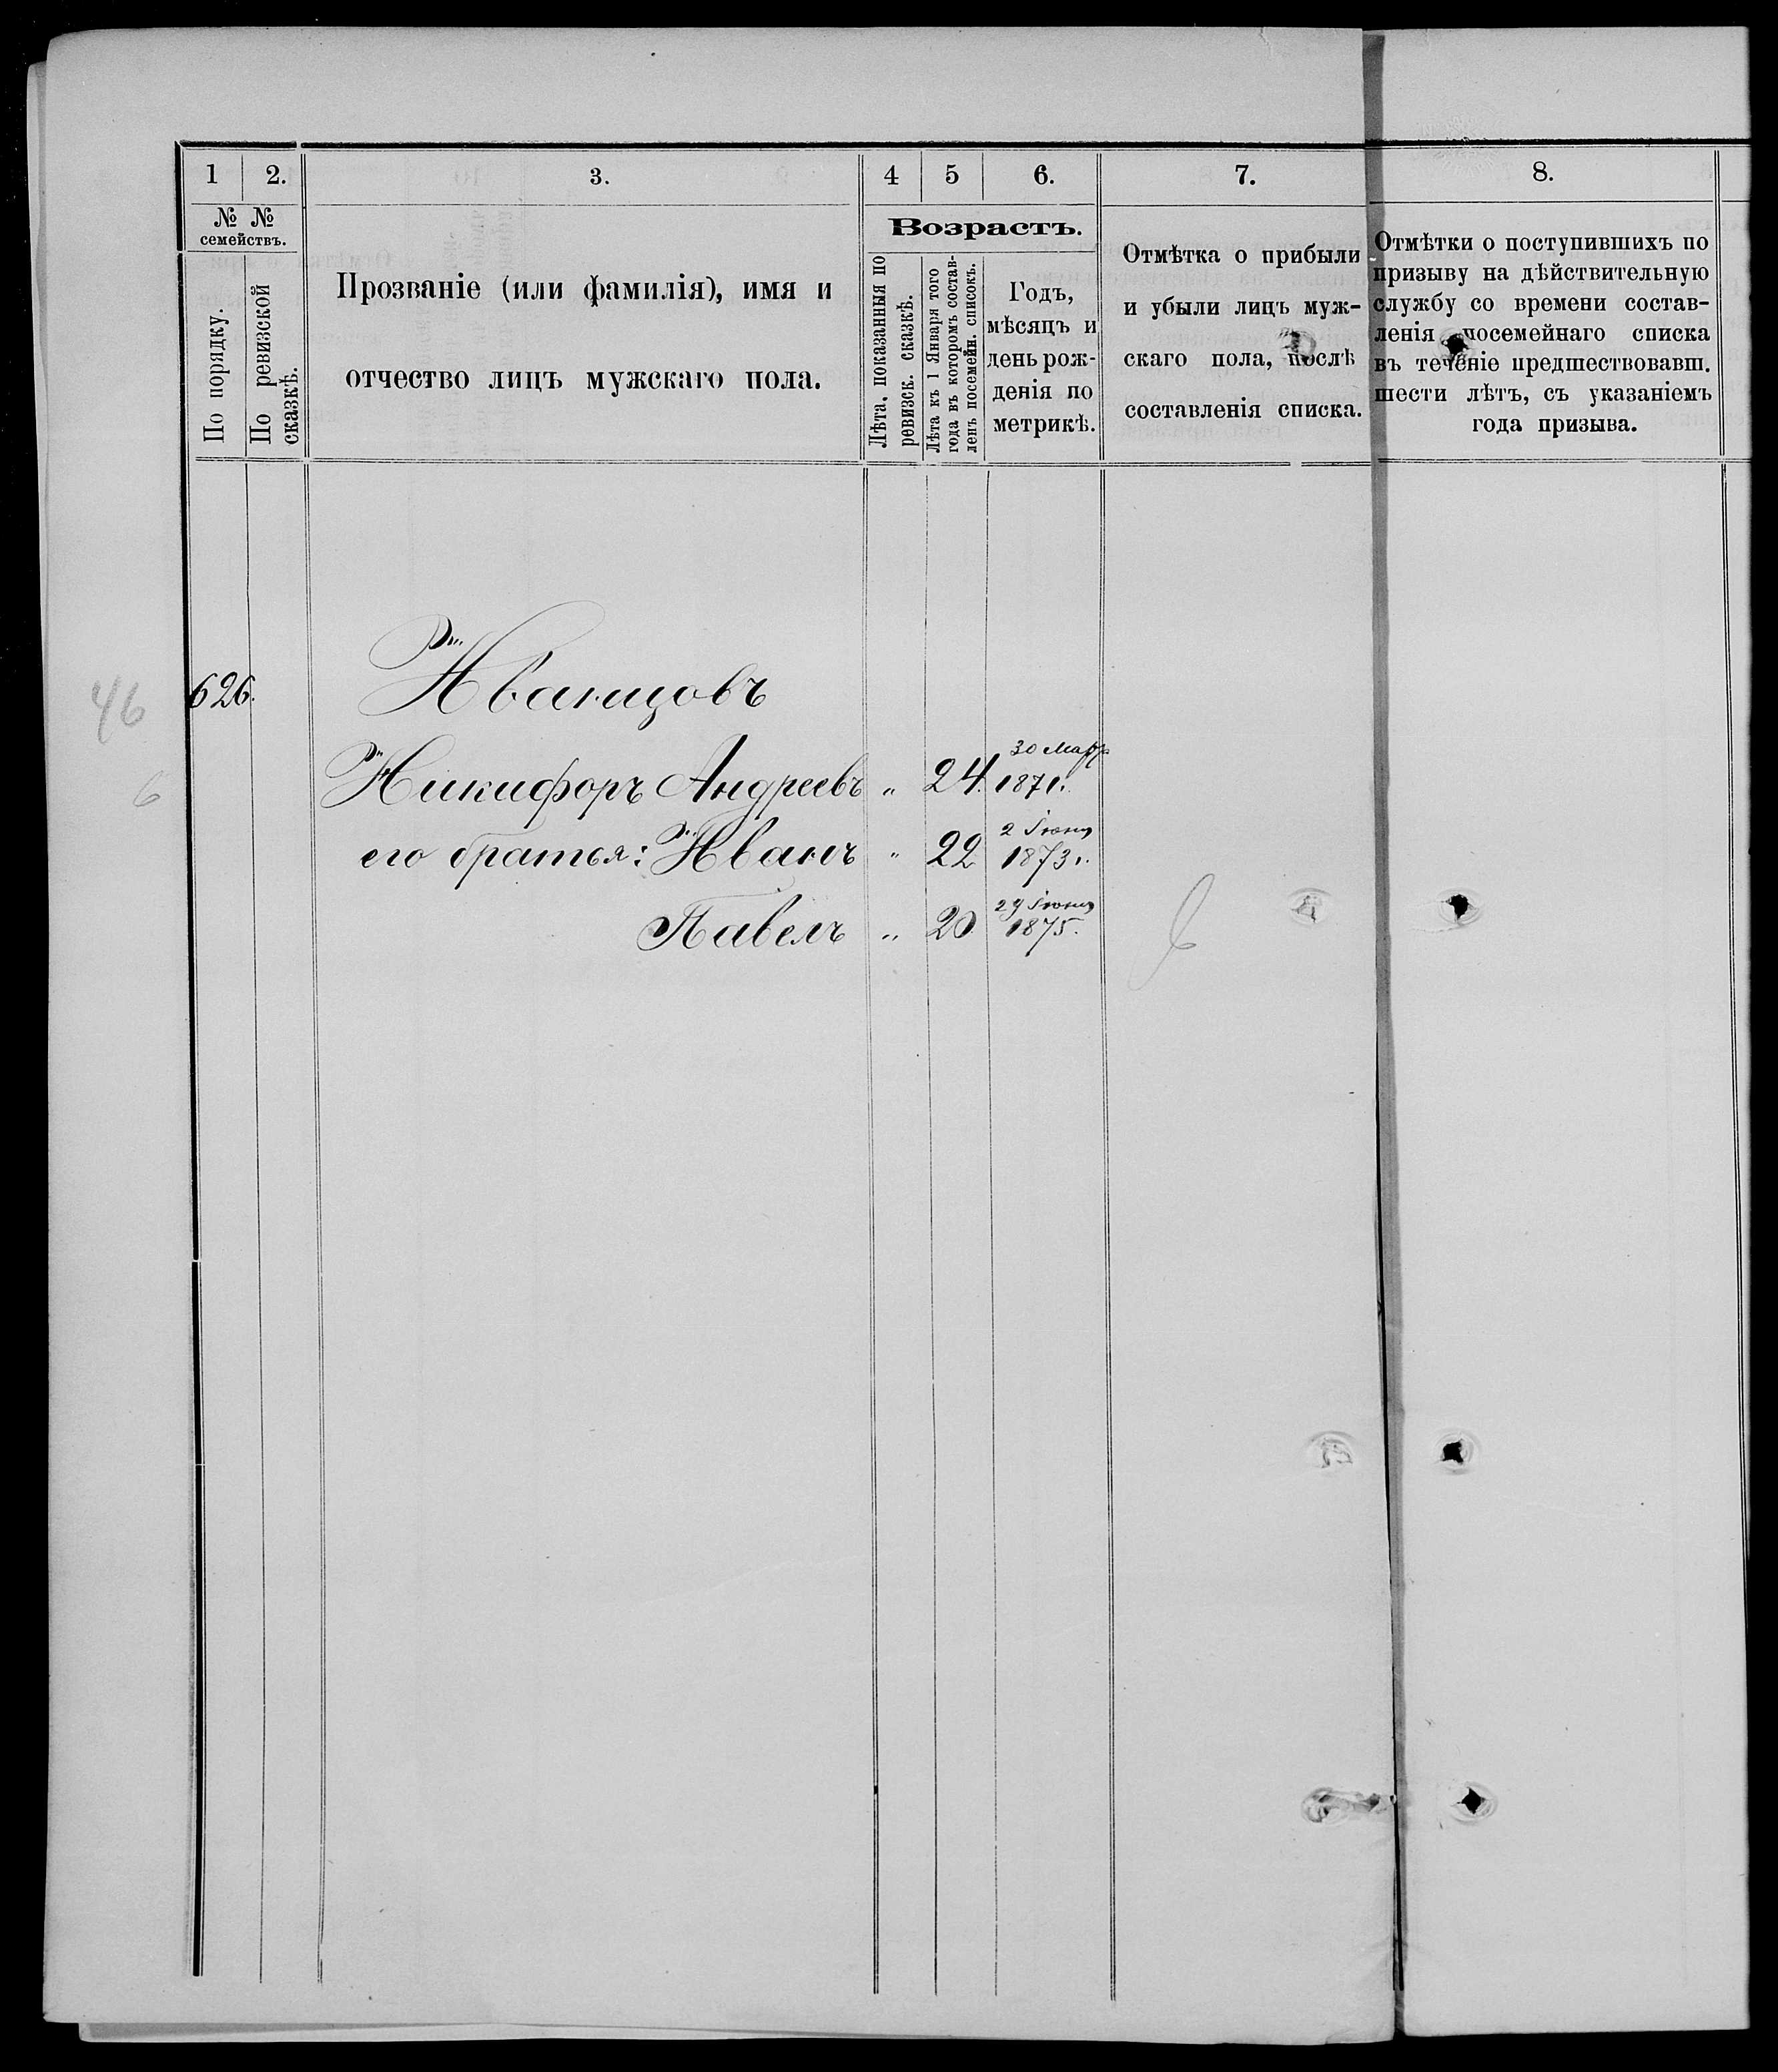 1 2. 3. 4 5 6. 7. 8.
№ № семействъ.
По порядку.
По ревизской сказкѣ.
Прозваніе (или фамилія), имя и
отчество лицъ мужскаго пола.
Возрастъ.
Лѣта, показанныя по
ревизск. сказкѣ.
Лѣта къ 1 Января того
года въ которомъ состав-
ленъ посемейн. списокъ.
Годъ,
мѣсяцъ и
день рож-
денія по
метрикѣ.
Отмѣтка о прибыли
и убыли лицъ муж-
скаго пола, послѣ
составленія списка.
Отмѣтки о поступившихъ по
призыву на дѣйствительную
службу со времени состав-
ленія посемейнаго списка
въ теченіе предшествовавш.
шести лѣтъ, съ указаніемъ
года призыва.
46 626. Иванцовъ
30 Мар
6 Никифоръ Андреевъ " 24. 1871.
2 Іюня
его братья: Иванъ " 22 1873.
29 Іюня
Павелъ " 20. 1875.